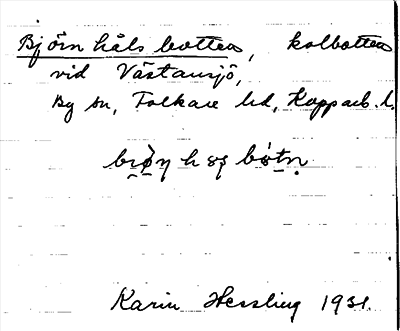 Björnhålsbotten, kolbotten
vid Västansjö,
By sn, Folkare hd, Kopparb. l.
Karin Hessling 1931.